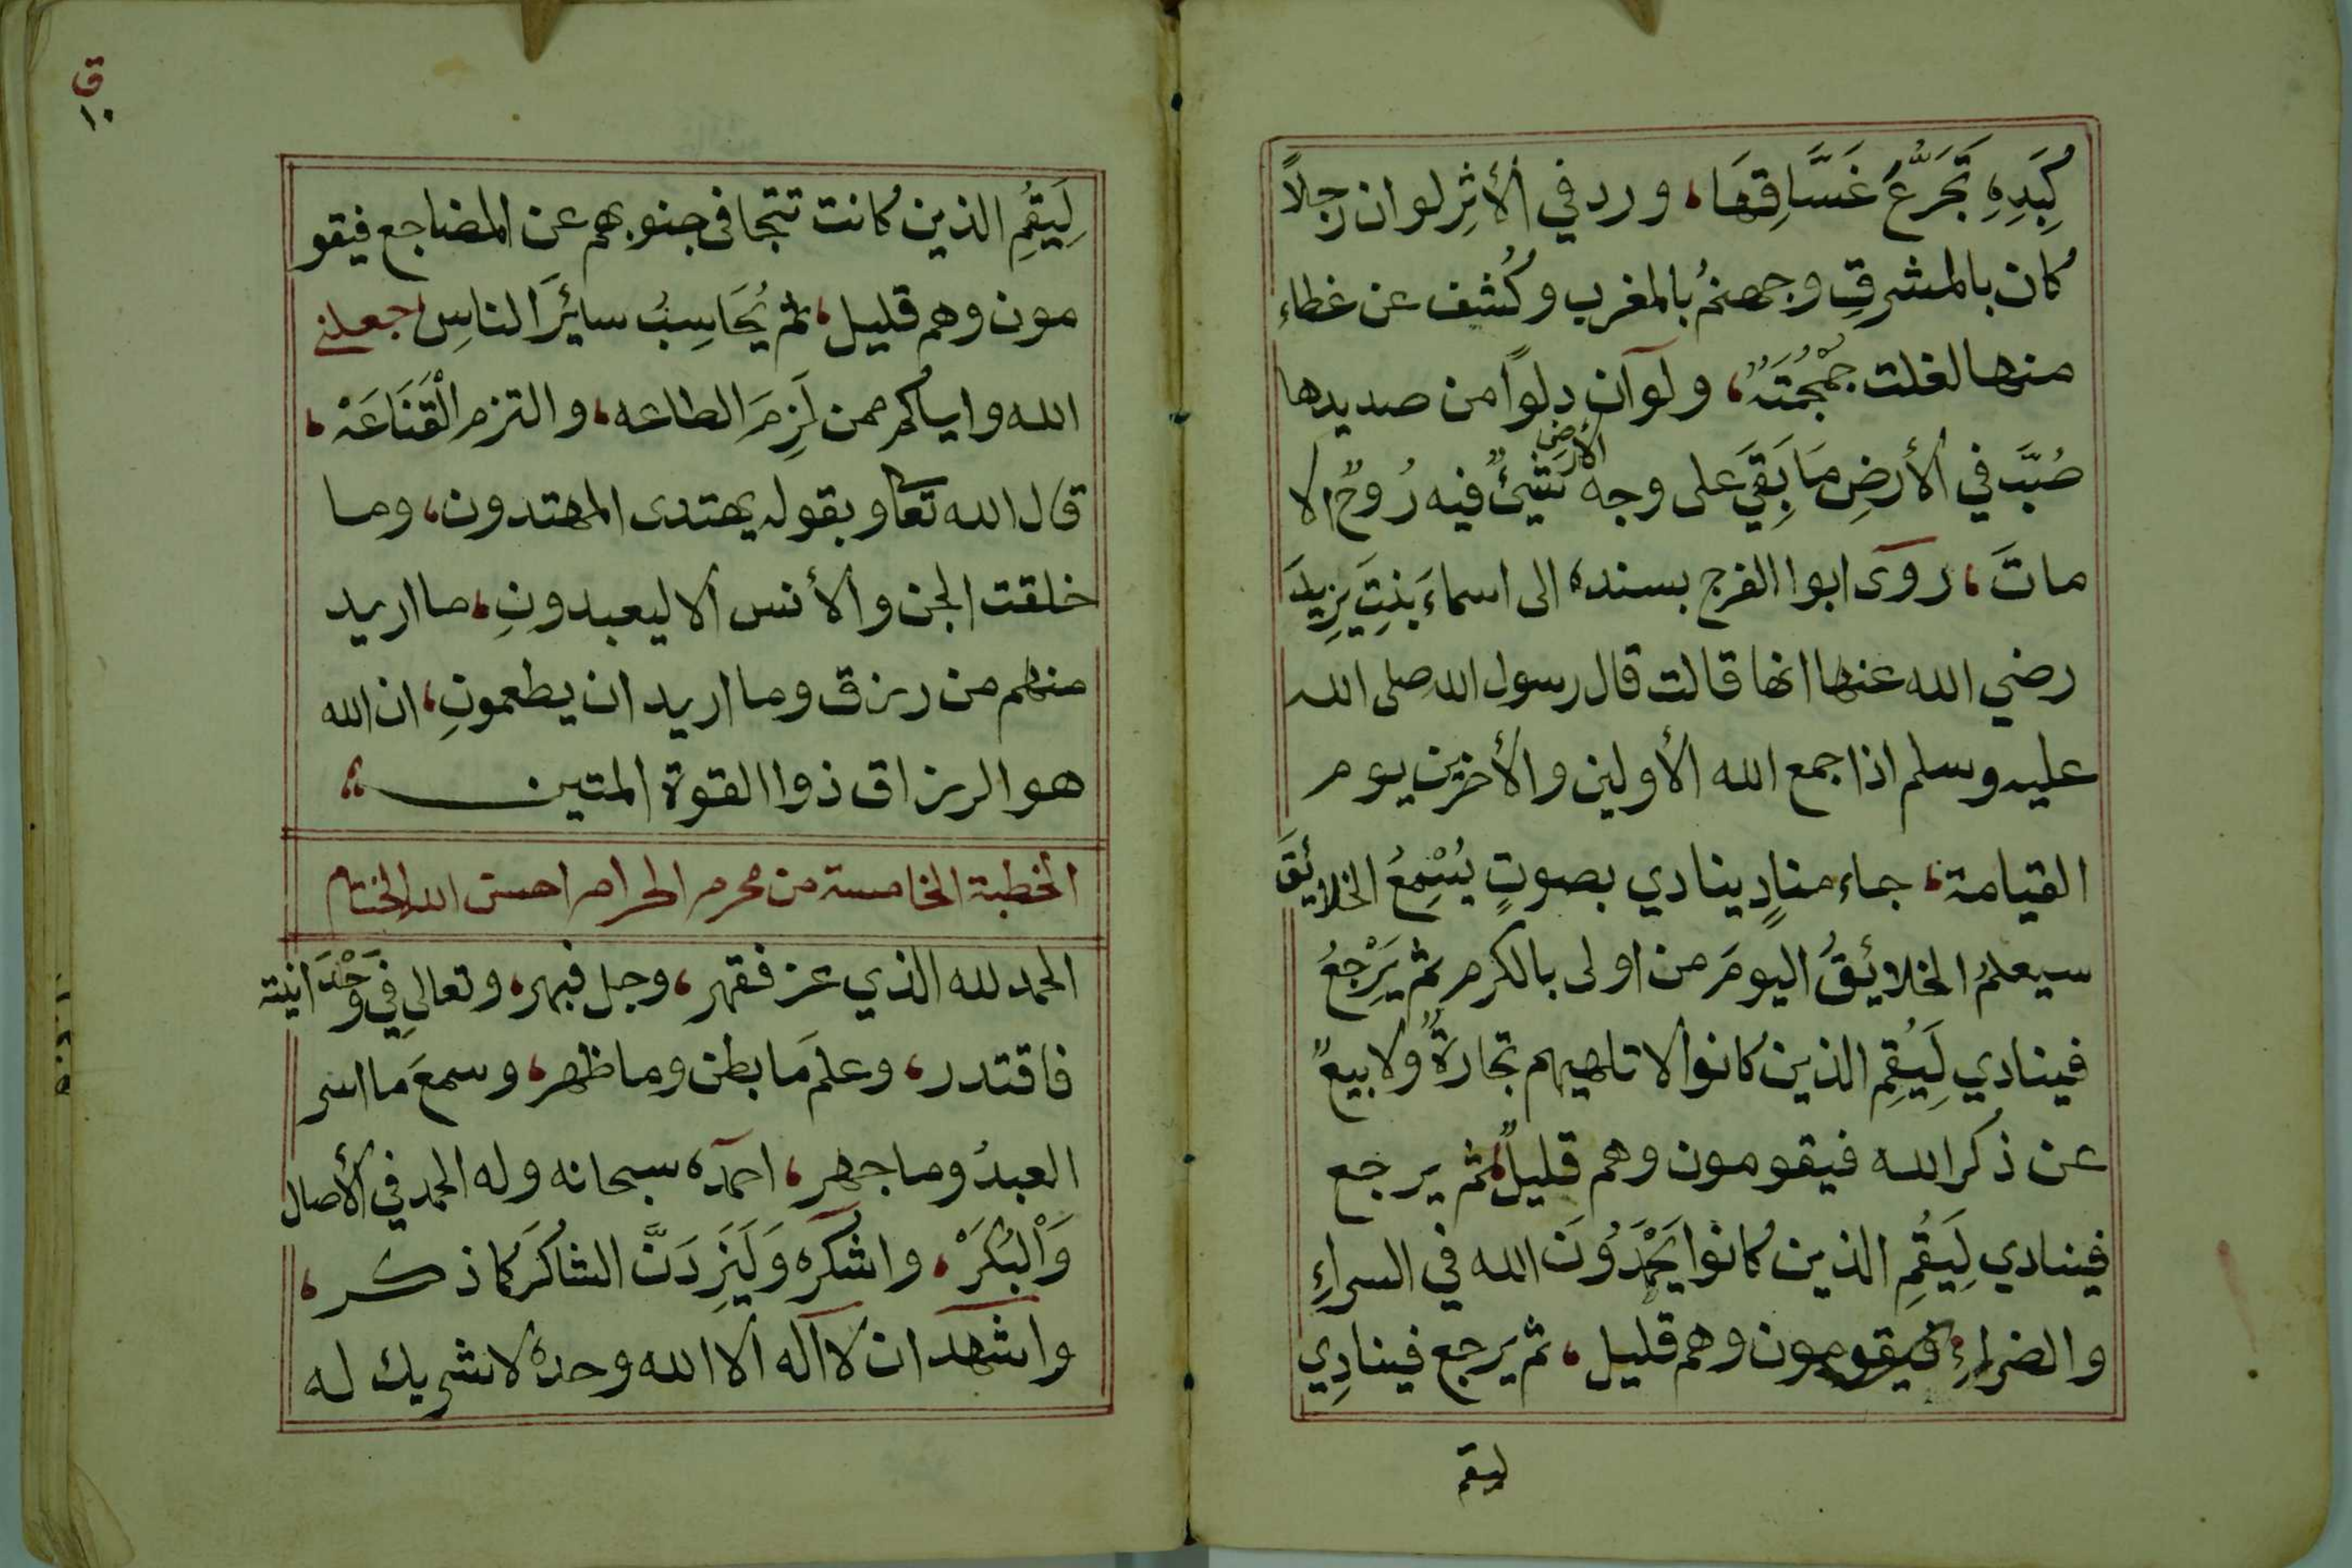 كَبِدِهِ تَجَرُّعُ غَسَّاقِهَا، ورد في الأثِر لو ان رجلاً
كان بالمشرقِ وجهنمُ بالمغرب وكُشف عن غطاء
منها لغلت جُمْجُمَتَهُ، ولو آن دلوًا من صديدها
صُبَّ في الأرضِ مَا بَقِيَ على وجه الأرض شيئٌ فيه رُوحٌ الا
ماتَ، روَى ابوا الفرج بسنده الى اسماءَ بَنِتِ يزِيدَ
رضي الله عنها انها قالت قال رسول الله صلى الله
عليه وسلم اذا جمع الله الأولين والأخرين يوم
القيامة، جاء منادٍ ينادي بصوتٍ يُسْمِعُ الخلائقَ
سيعلمُ الخلائقُ اليومَ من اولى بالكرم ثم يَرْجعُ
فينادي لِيَقُمِ الذين كانوا لا تلهيهم تجارةٌ ولا بيعٌ
عن ذكر الله فيقومون وهم قليلٌ، ثم يرجع
فينادي لِيَقُمِ الذين كانوا يَحْمَدُونَ الله في السراءِ
والضراءِ، فيقومون وهم قليل، ثم يرجع فينادِي
ليقم
ق
١٠
لِيَقُمِ الذين كانت تتجافى جنوبهم عن المضاجع فيقو
مون وهم قليل، ثم يُحَاسِبُ سائِرَ الناسِ جعلني
الله واياكم ممن لَزِمَ الطاعه، والتزم الْقَنَاعَهْ،
قال الله تعا وبقوله يهتدى المهتدون، وما
خلقت الجن والأنس الا ليعبدونِ، ما اريد
منهم من رزق وما اريد ان يطعمونِ، ان الله
هو الرزاق ذوا القوة المتين
الخطبة الخامسة من محرم الحرام احسن الله الختام
الحمد لله الذي عز فقهر، وجل فبهر، وتعالى في وَحْدَانيته
فاقتدر، وعلمَ ما بطن وما ظهر، وسمعَ ما اسر
العبدُ وما جهر، احمده سبحانه وله الحمد في الأصال
وَاْلبُكَرْ، واشكره وَلَيَزِدَنَّ الشاكرَ كما ذكر،
واشهد ان لا آله الا الله وحده لا شريك له